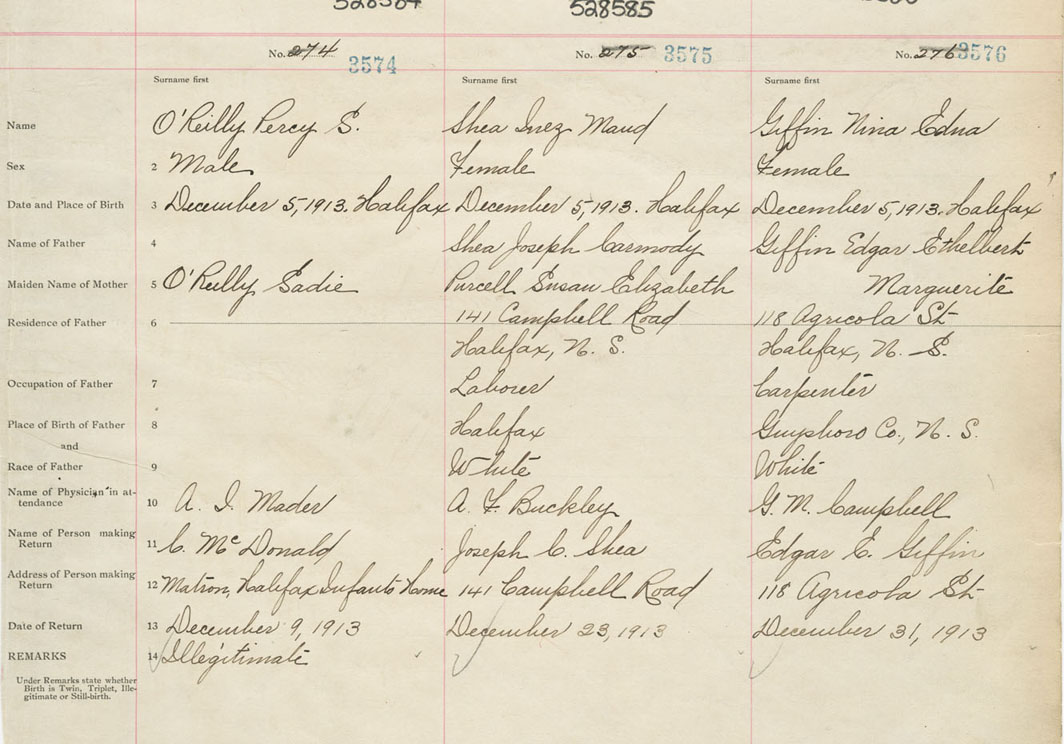 528585
No. 274 3574 No. 275 3575 No. 276 3576
Surname first Surname first Surname first
Name O'Reilly Percy S. Shea Inez Maud Giffin Nina Edna
Sex 2 Male Female Female
Date and Place of Birth 3 December 5, 1913. Halifax December 5, 1913. Halifax December 5, 1913. Halifax
Name of Father 4 Shea Joseph Carmody Giffin Edgar Ethelbert
Maiden Name of Mother 5 O'Reilly Sadie Purcell Susan Elizabeth Marguerite
Residence of Father 6 141 Campbell Road 118 Agricola St
Halifax, N. S. Halifax, N. S.
Occupation of Father 7 Laborer Carpenter
Place of Birth of Father 8 Halifax Guysboro Co., N. S.
and
Race of Father 9 White White
Name of Physician in at-
tendance 10 A. I. Mader A. F. Buckley G. M. Campbell
Name of Person making
Return 11 C. McDonald Joseph C. Shea Edgar E. Giffin
Address of Person making
Return 12 Matron, Halifax Infants Home 141 Campbell Road 118 Agricola St
Date of Return 13 December 9, 1913 December 23, 1913 December 31, 1913
REMARKS 14 Illegitimate
Under Remarks state whether
Birth is Twin, Triplet, Ille-
gitimate or Still-birth.